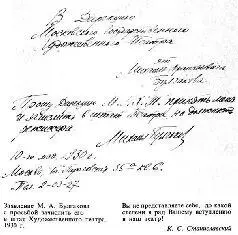 В Дирекцию
Московского Государственного
Художественного Театра
Михаила Афанасьевича
Булгакова
Прошу Дирекцию принять меня
и зачислить в штат Театра на должность
режиссера
Михаил Булгаков
10-го 1930 г.
Москва, 35 кв. 6.
Тел. 2-03-27
Заявление М. А. Булгакова
с просьбой зачислить его
в штат Художественного театра.
1930 г.
Вы не представляете себе, до какой
степени я рад Вашему вступлению
в наш театр!
К. С. Станиславский